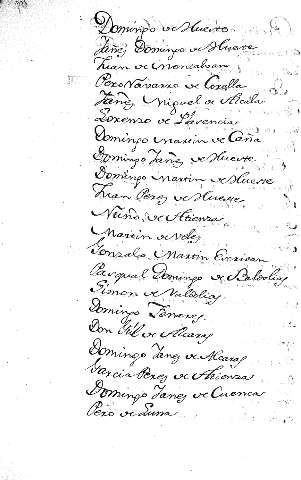 Domingo de Huerte
Jañez Domingo de Huerte
Juan de Moncalvan
Pero Navarro de Corella
Jañez Miguel de Alcala
Lorenzo de Plasencia
Domingo Martin de Caña
Domingo Jañez de Huerte
Domingo Martin de Huerte
Juan Perez de Huerte
Nuño de Atienza
Martin de Velez
Gonzalo Martin
Pasqual Domingo de
Simon de
Domingo
Don Gil de Alcaras
Domingo Janez de Alcaras
Garcia Perez de Atienza
Domingo Janez de Cuenca
Pero de Luna